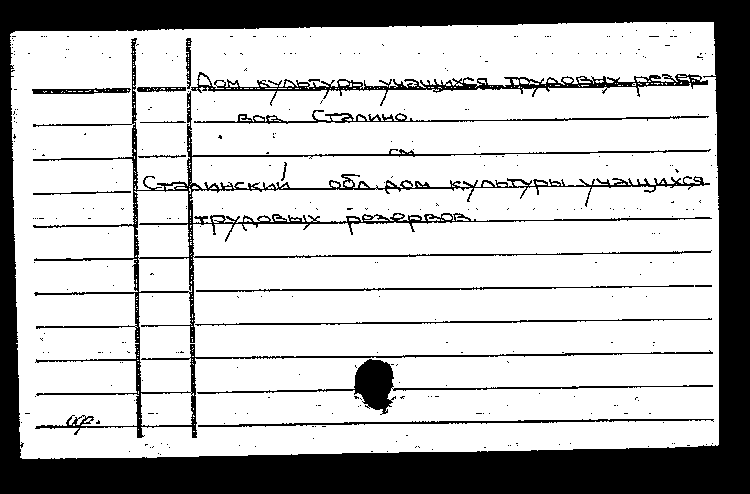 Дом культуры учащихся трудовых резер-
вов Сталино.
см
Сталинский обл. дом культуры учащихся
трудовых резервов